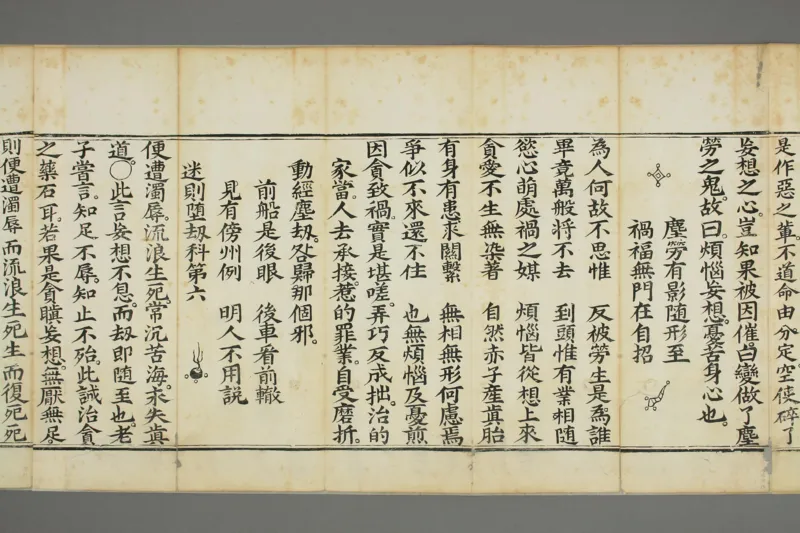 是作惡之輩不道命由分定空使碎了
妄想之心豈知果被因催白變做了塵
勞之鬼故曰煩惱妄想憂苦身心也
塵勞有影隨形至
禍福無門在自招
為人何故不思惟 反被勞生是為誰
畢竟萬般將不去 到頭惟有業相隨
慾心萌處禍之媒 煩惱皆從想上來
貪愛不生無染著 自然赤子產真胎
有身有患求關繫 無相無形何慮焉
爭似不來還不住 也無煩惱及憂煎
因貪致禍實是堪嗟弄巧反成拙治的
家當人去承接惹的罪業自受磨折
動經塵劫咎歸那個邪
前船是後眼 後車看前轍
見有傍州例 明人不用說
迷則墮劫科第六
便遭濁辱流浪生死常沉苦海永失真
道〇此言妄想不息而劫即隨至也老
子嘗言知足不辱知止不殆此誡治貪
之藥石耳若果是貪瞋妄想無厭無足
則便遭濁辱而流浪生死生而復死死